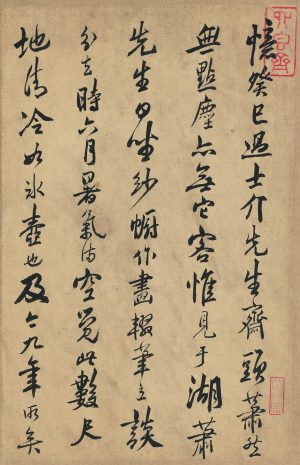 憶癸巳過士介先生齋頭蕭然
無點塵亦無它客惟見于湖蕭
先生坐紗幮作畫輟筆立談
時六月暑氣滿空覺此數尺
地清冷如冰壺也及今九年所矣